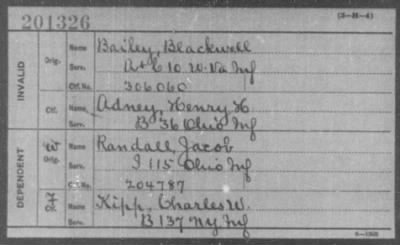 201326
(3-H-4)
INVALID
Orig.
Name Bailey, Blackwell
Serv. B+C 10 W Va Inf
Ctf. No. 306060
Ctf.
Name Adney, Henry H
Serv. B 36 Ohio Inf
DEPENDENT
W Orig.
Name Randall, Jacob
Serv. I 115 Ohio Inf
Ctf. No. 204787
Name Kipp, Charles W.
Serv. B 137 NY Inf